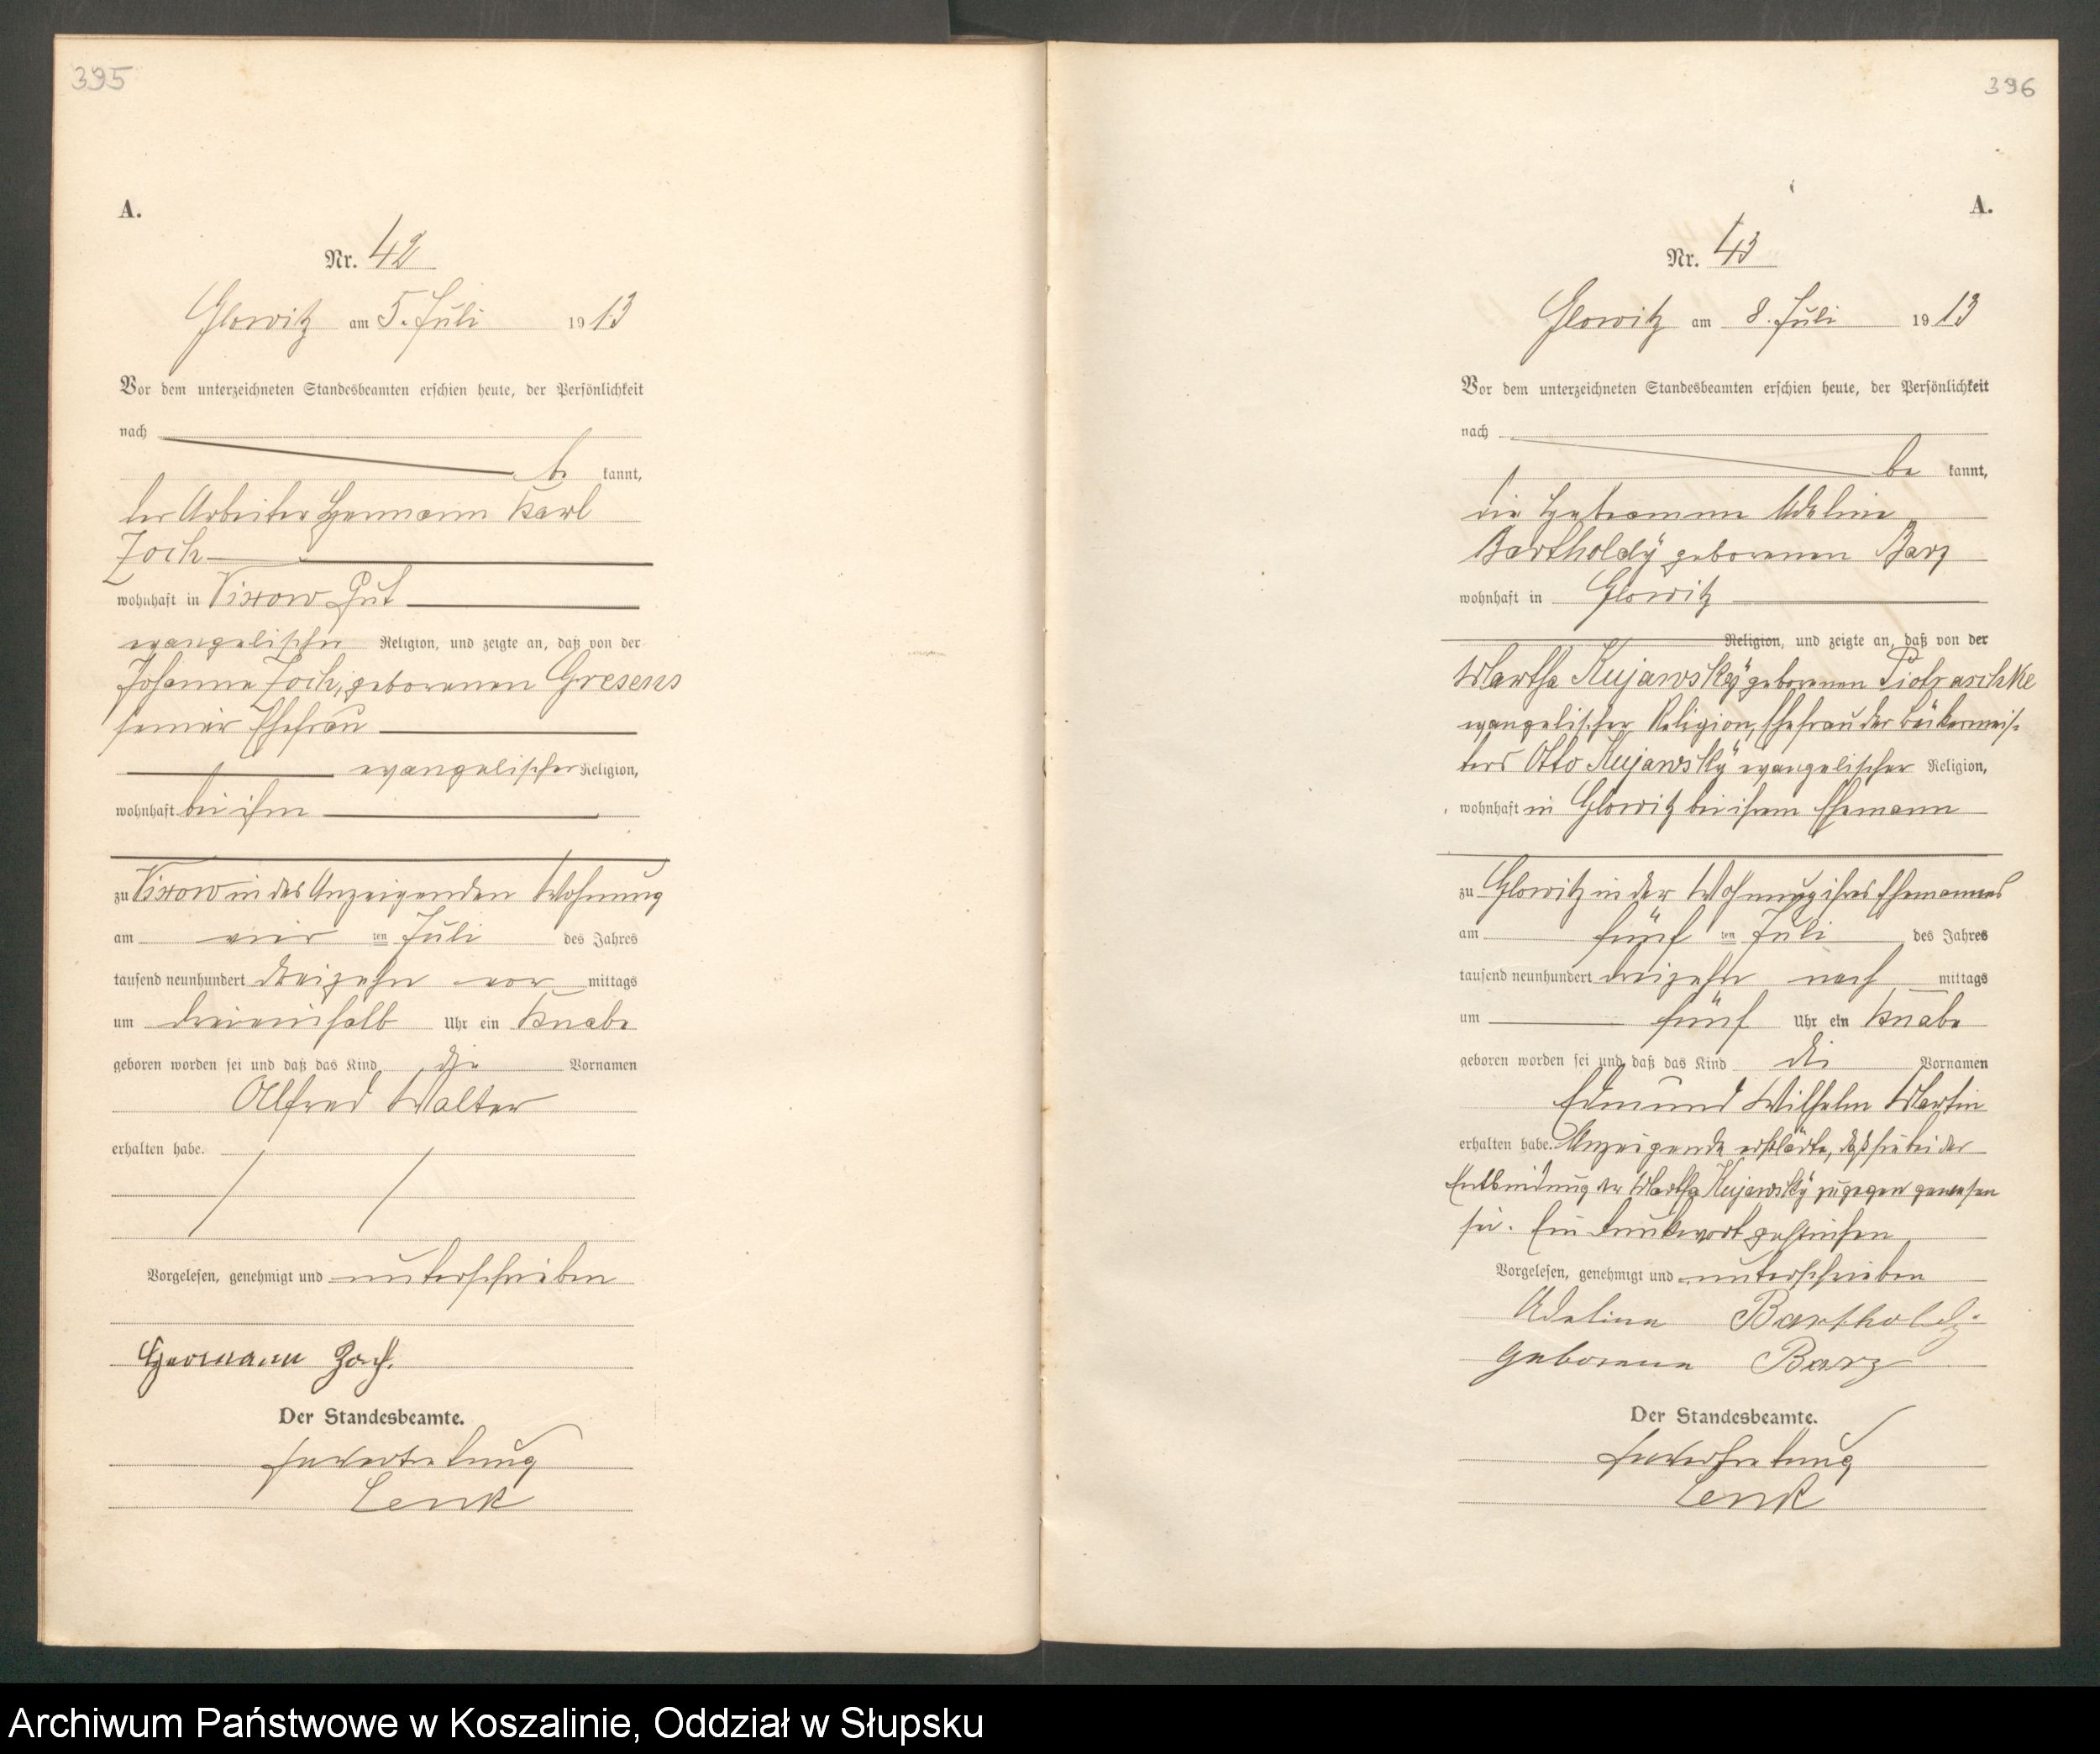 395
A.
Nr. 42
Glowitz am 5. Juli 1913
Vor dem unterzeichneten Standesbeamten erschien heute, der Persönlichkeit
nach
be kannt,
der Arbeiter Hermann Karl
Zoch
wohnhaft in Vixow Gut
evangelischer Religion, und zeigte an, daß von der
Johanna Zoch, geborenen Gresens
seiner Ehefrau
evangelischer Religion,
wohnhaft bei ihm
zu Vixow in des Anzeigenden Wohnung
am vier ten Juli des Jahres
tausend neunhundert dreizehn vor mittags
um dreieinhalb Uhr ein Knabe
geboren worden sei und daß das Kind die Vornamen
Alfred Walter
erhalten habe.
Vorgelesen, genehmigt und unterschrieben
Hermann Zoch.
Der Standesbeamte.
In Vertretung
Lenk
396
A.
Nr. 43
Glowitz am 8. Juli 1913
Vor dem unterzeichneten Standesbeamten erschien heute, der Persönlichkeit
nach
be kannt,
die Hebamme Adeline
Bartholdÿ geborenen Barz
wohnhaft in Glowitz
Religion, und zeigte an, daß von der
Martha Kujawskÿ geborenen Piotraschke
evangelischer Religion, Ehefrau des Bäckermeis-
ters Otto Kujawskÿ evangelischer Religion,
wohnhaft in Glowitz bei ihrem Ehemann
zu Glowitz in der Wohnung ihres Ehemannes
am fünf ten Juli des Jahres
tausend neunhundert dreizehn nach mittags
um fünf Uhr ein Knabe
geboren worden sei und daß das Kind die Vornamen
Edmund Wilhelm Martin
erhalten habe. Anzeigende erklärte, daß sie bei der
Entbindung der Martha Kujawskÿ zugegen gewesen
sei. Ein Druckwort gestrichen
Vorgelesen, genehmigt und unterschrieben
Adeline Bartholdy
geborene Barz
Der Standesbeamte.
In Vertretung
Lenk
Archiwum Państwowe w Koszalinie, Oddział w Słupsku